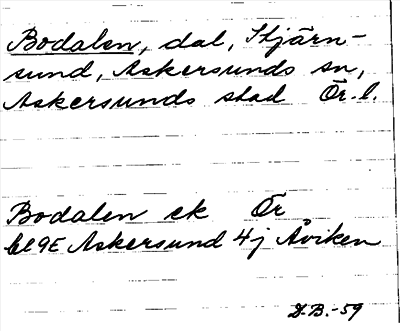 Bodalen, dal, Stjärn-
sund, Askersunds sn,
Askersunds stad Ör. l.
Bodalen ek Ör
bl 9E Askersund 4j Åviken
D.B.-59